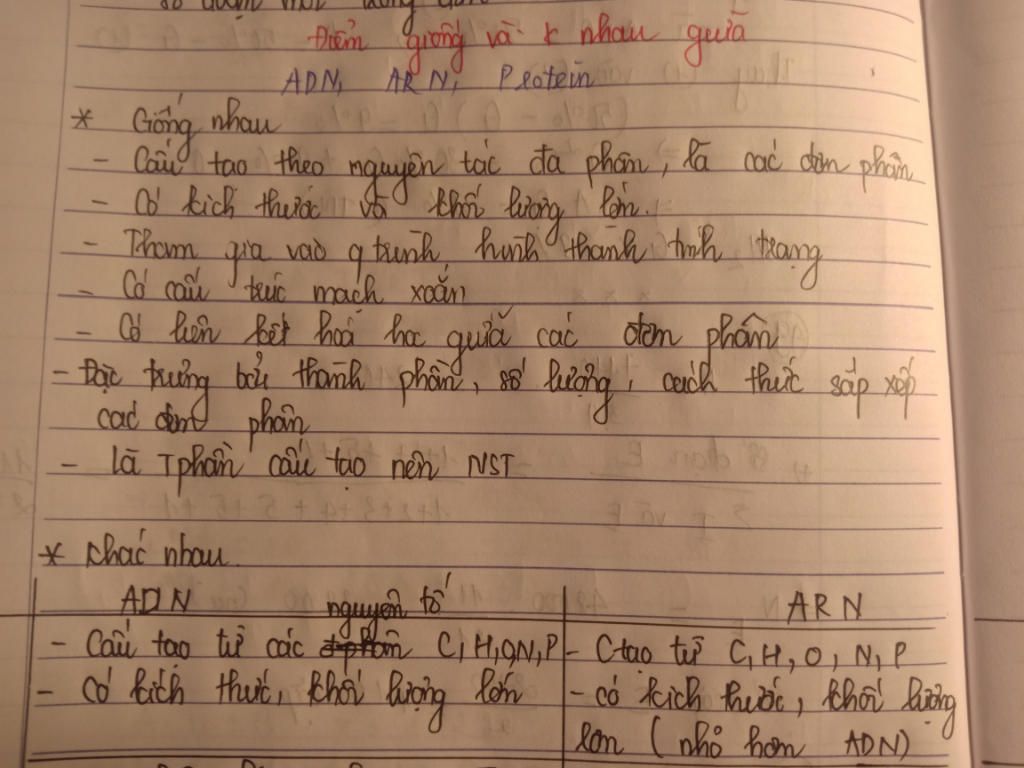 Điểm giống và k nhau giữa
ADN, ARN, Protein
* Giống nhau
- Cấu tạo theo nguyên tắc đa phân, là các đơn phân
- Có kích thước và khối lượng lớn.
- Tham gia vào q trình hình thành tính trạng
- Có cấu trúc mạch xoắn
- Có liên kết hoá học giữa các đơn phân
- Đặc trưng bởi thành phần, số lượng, cách thức sắp xếp
các đơn phân
- là Tphần cấu tạo nên NST
* Khác nhau.
ADN
- Cấu tạo từ các nguyên tố C, H, O, N, P
- Có kích thước, khối lượng lớn
ARN
- Ctạo từ C, H, O, N, P
- có kích thước, khối lượng
lớn (nhỏ hơn ADN)